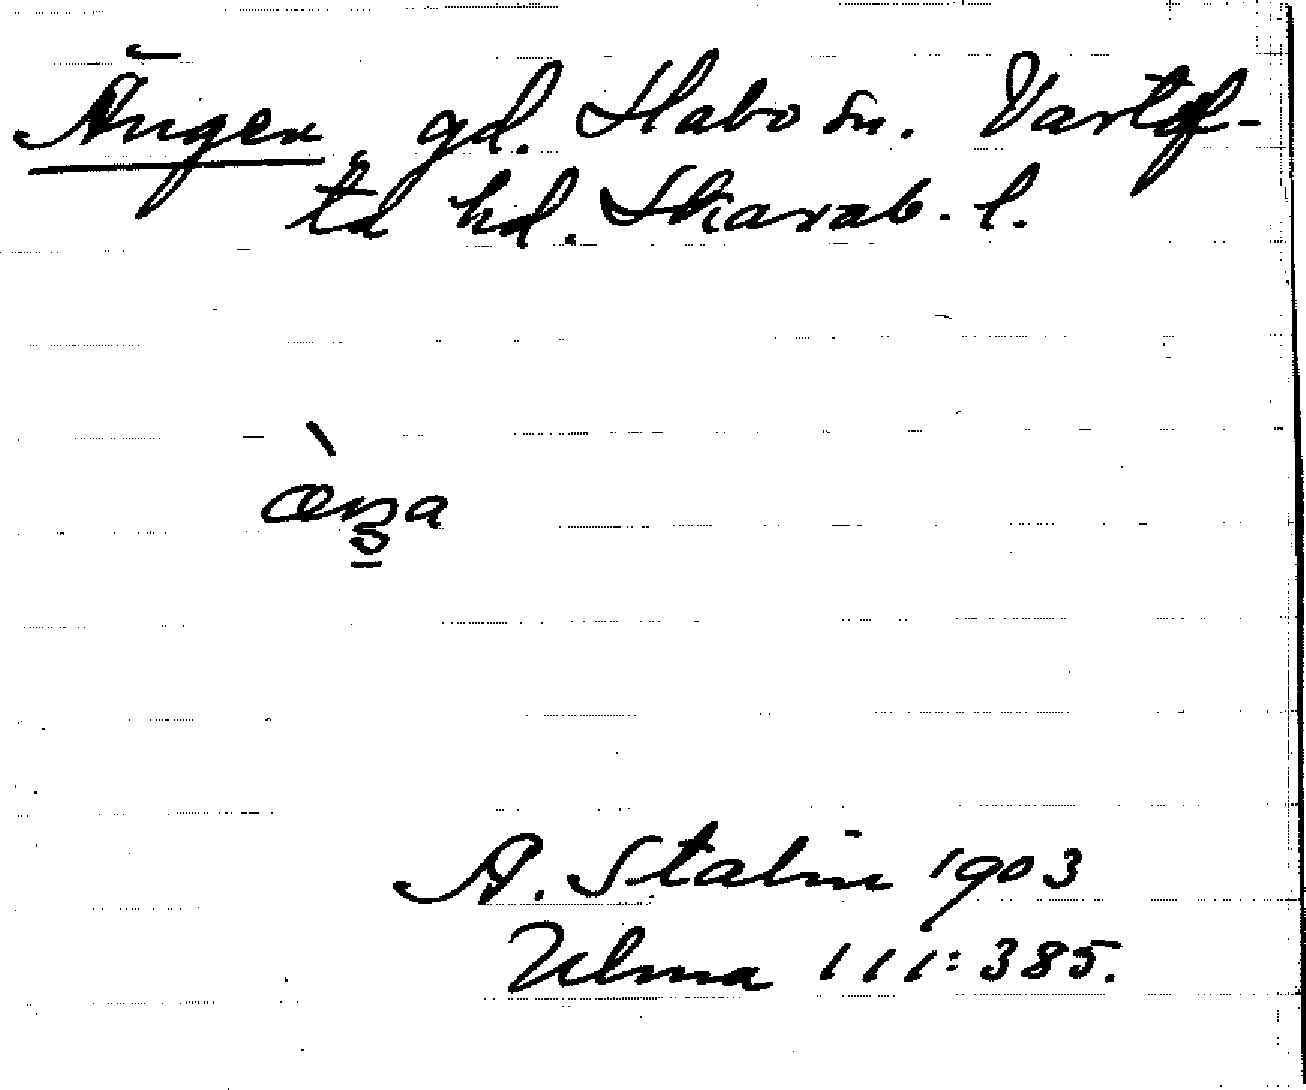 Ängen gd. Habo sn. Vartof-
ta hd. Skarab. l.
A. Stalin 1903
Ulma 111:385.